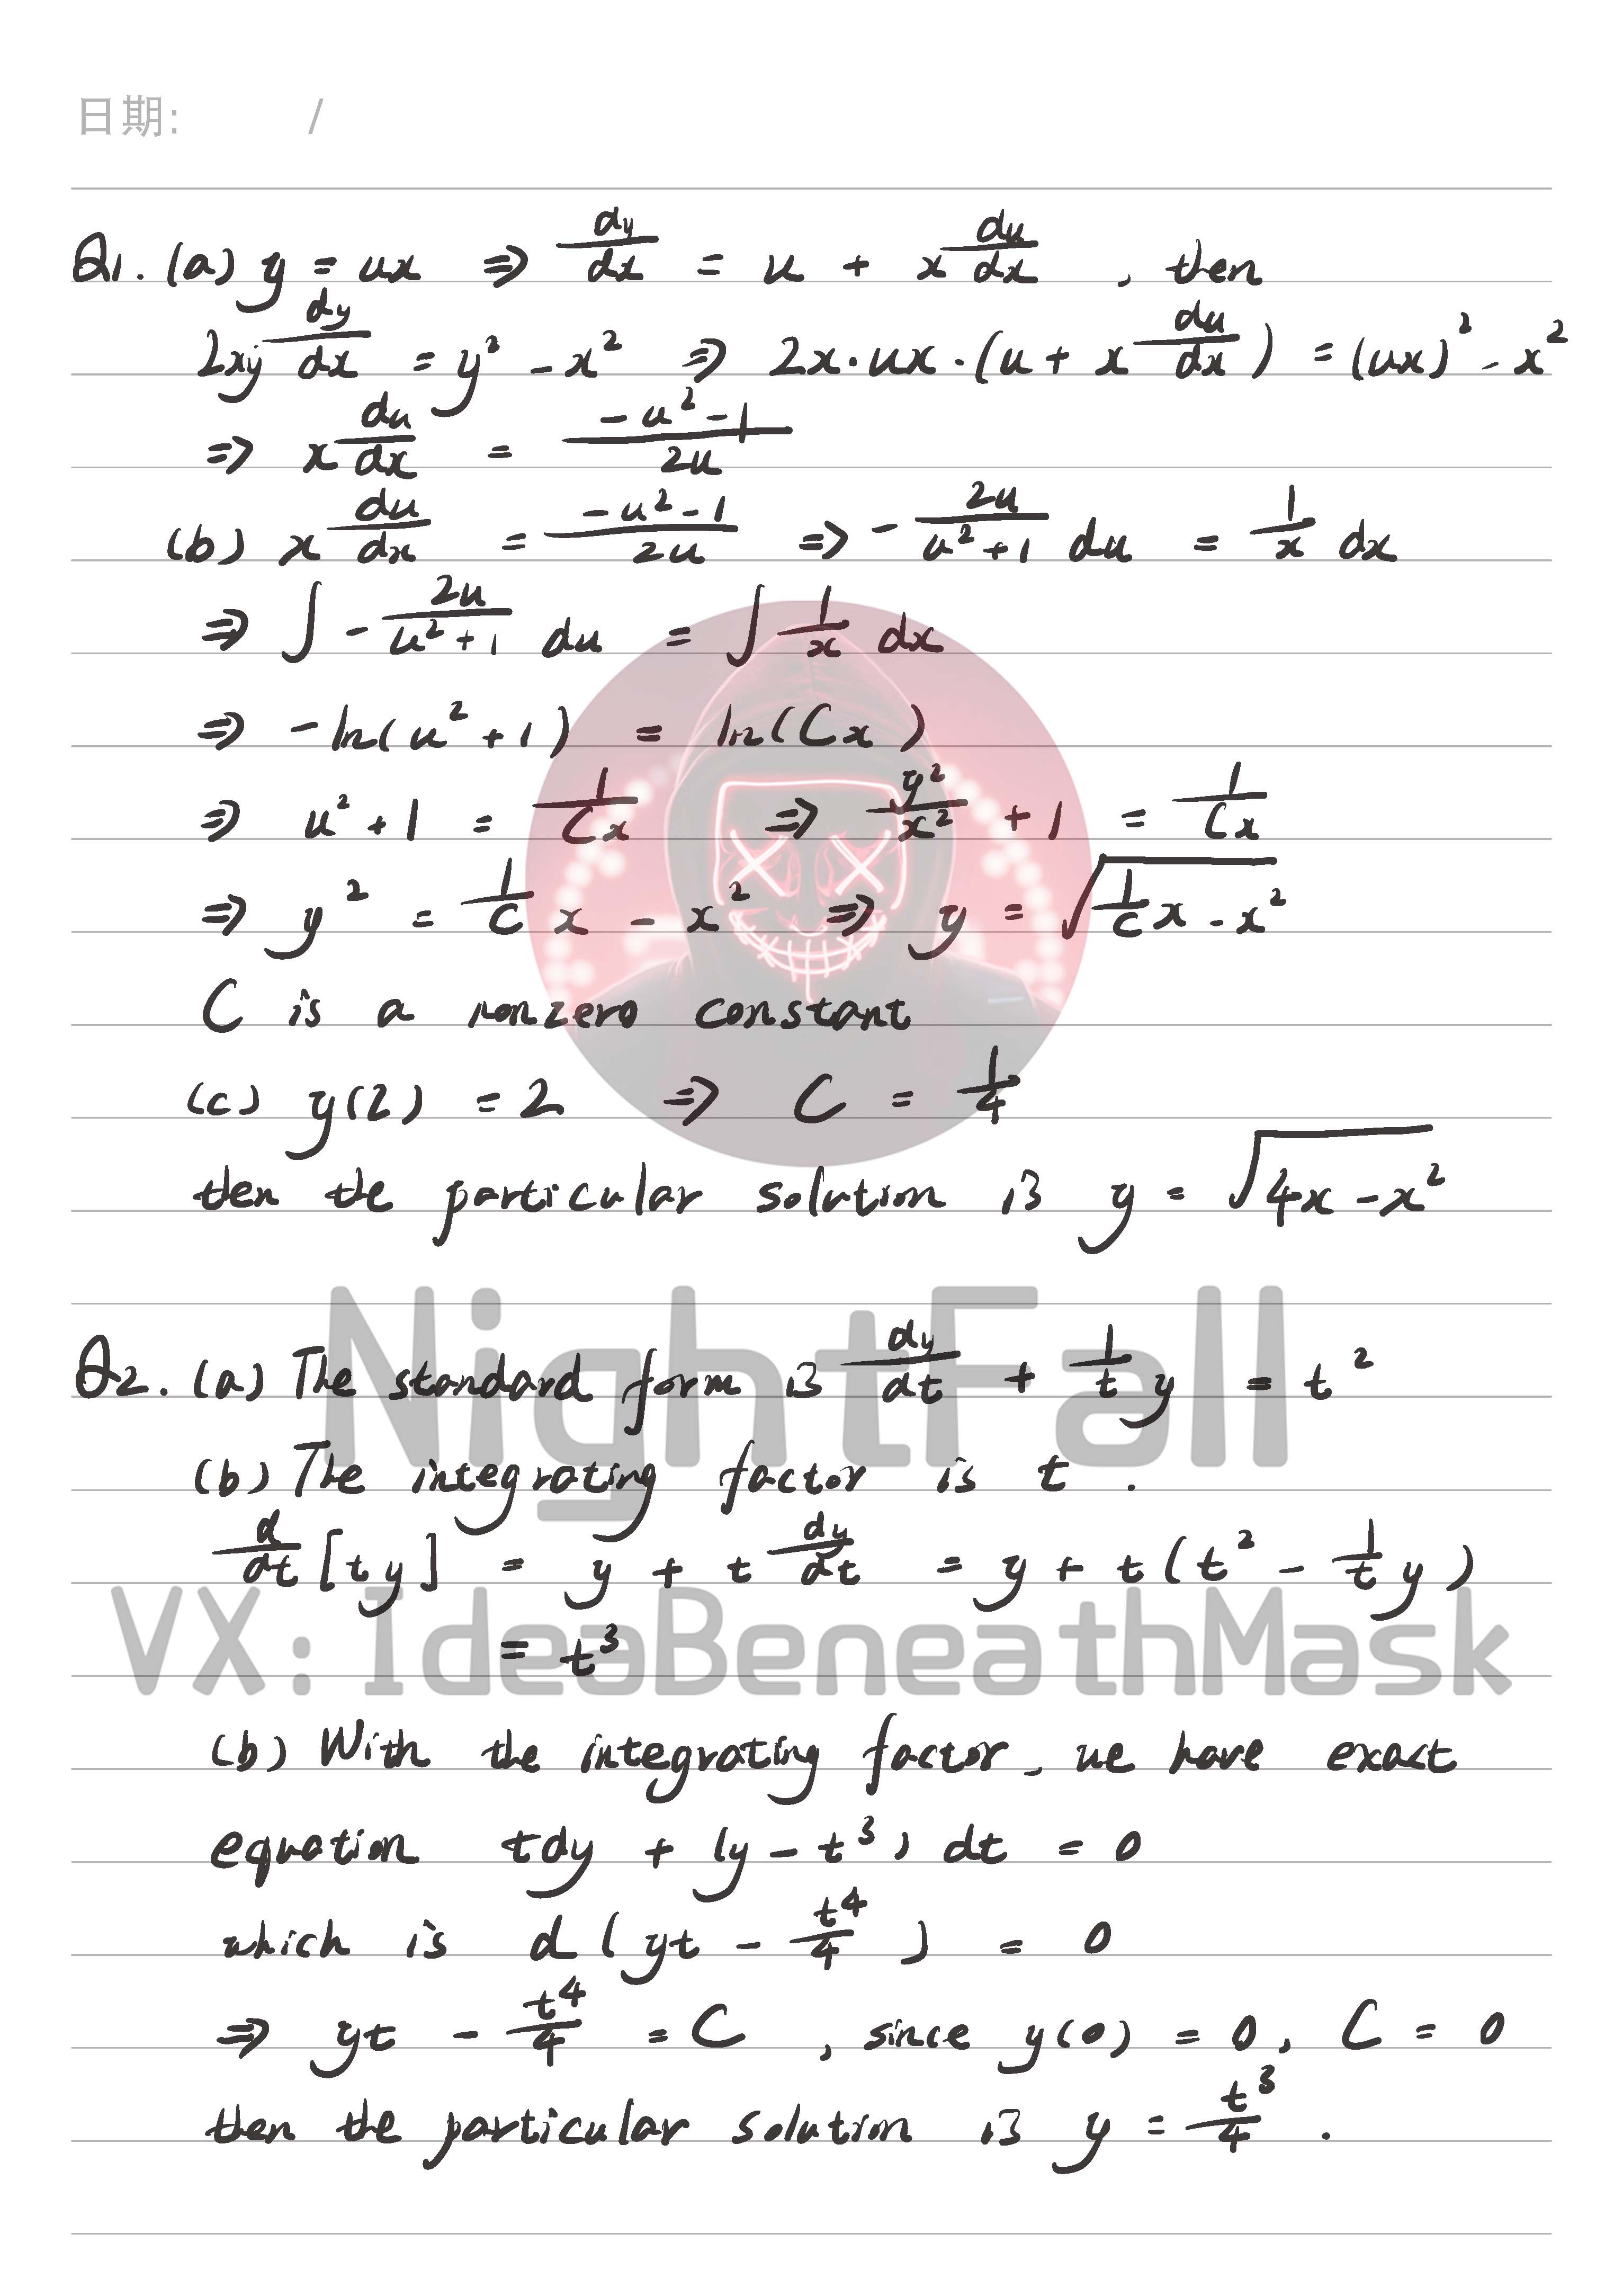 日期: /
Q1. (a) y = ux ⇒ dy/dx = u + x du/dx , then
2xy dy/dx = y² - x² ⇒ 2x·ux·(u + x du/dx) = (ux)² - x²
⇒ x du/dx = (-u²-1)/(2u)
(b) x du/dx = (-u²-1)/(2u) ⇒ - 2u/(u²+1) du = 1/x dx
⇒ ∫ - 2u/(u²+1) du = ∫ 1/x dx
⇒ -ln(u²+1) = ln(Cx)
⇒ u²+1 = 1/(Cx) ⇒ y²/x² + 1 = 1/(Cx)
⇒ y² = 1/C x - x² ⇒ y = √(1/C x - x²)
C is a nonzero constant
(c) y(2) = 2 ⇒ C = 1/4
then the particular solution is y = √(4x - x²)
NightFall
Q2. (a) The standard form is dy/dt + 1/t y = t²
(b) The integrating factor is t .
d/dt [ty] = y + t dy/dt = y + t(t² - 1/t y)
VX: IdeaBeneathMask
= t³
(b) With the integrating factor, we have exact
equation tdy + (y - t³) dt = 0
which is d(yt - t⁴/4) = 0
⇒ yt - t⁴/4 = C , since y(0) = 0, C = 0
then the particular solution is y = t³/4 .